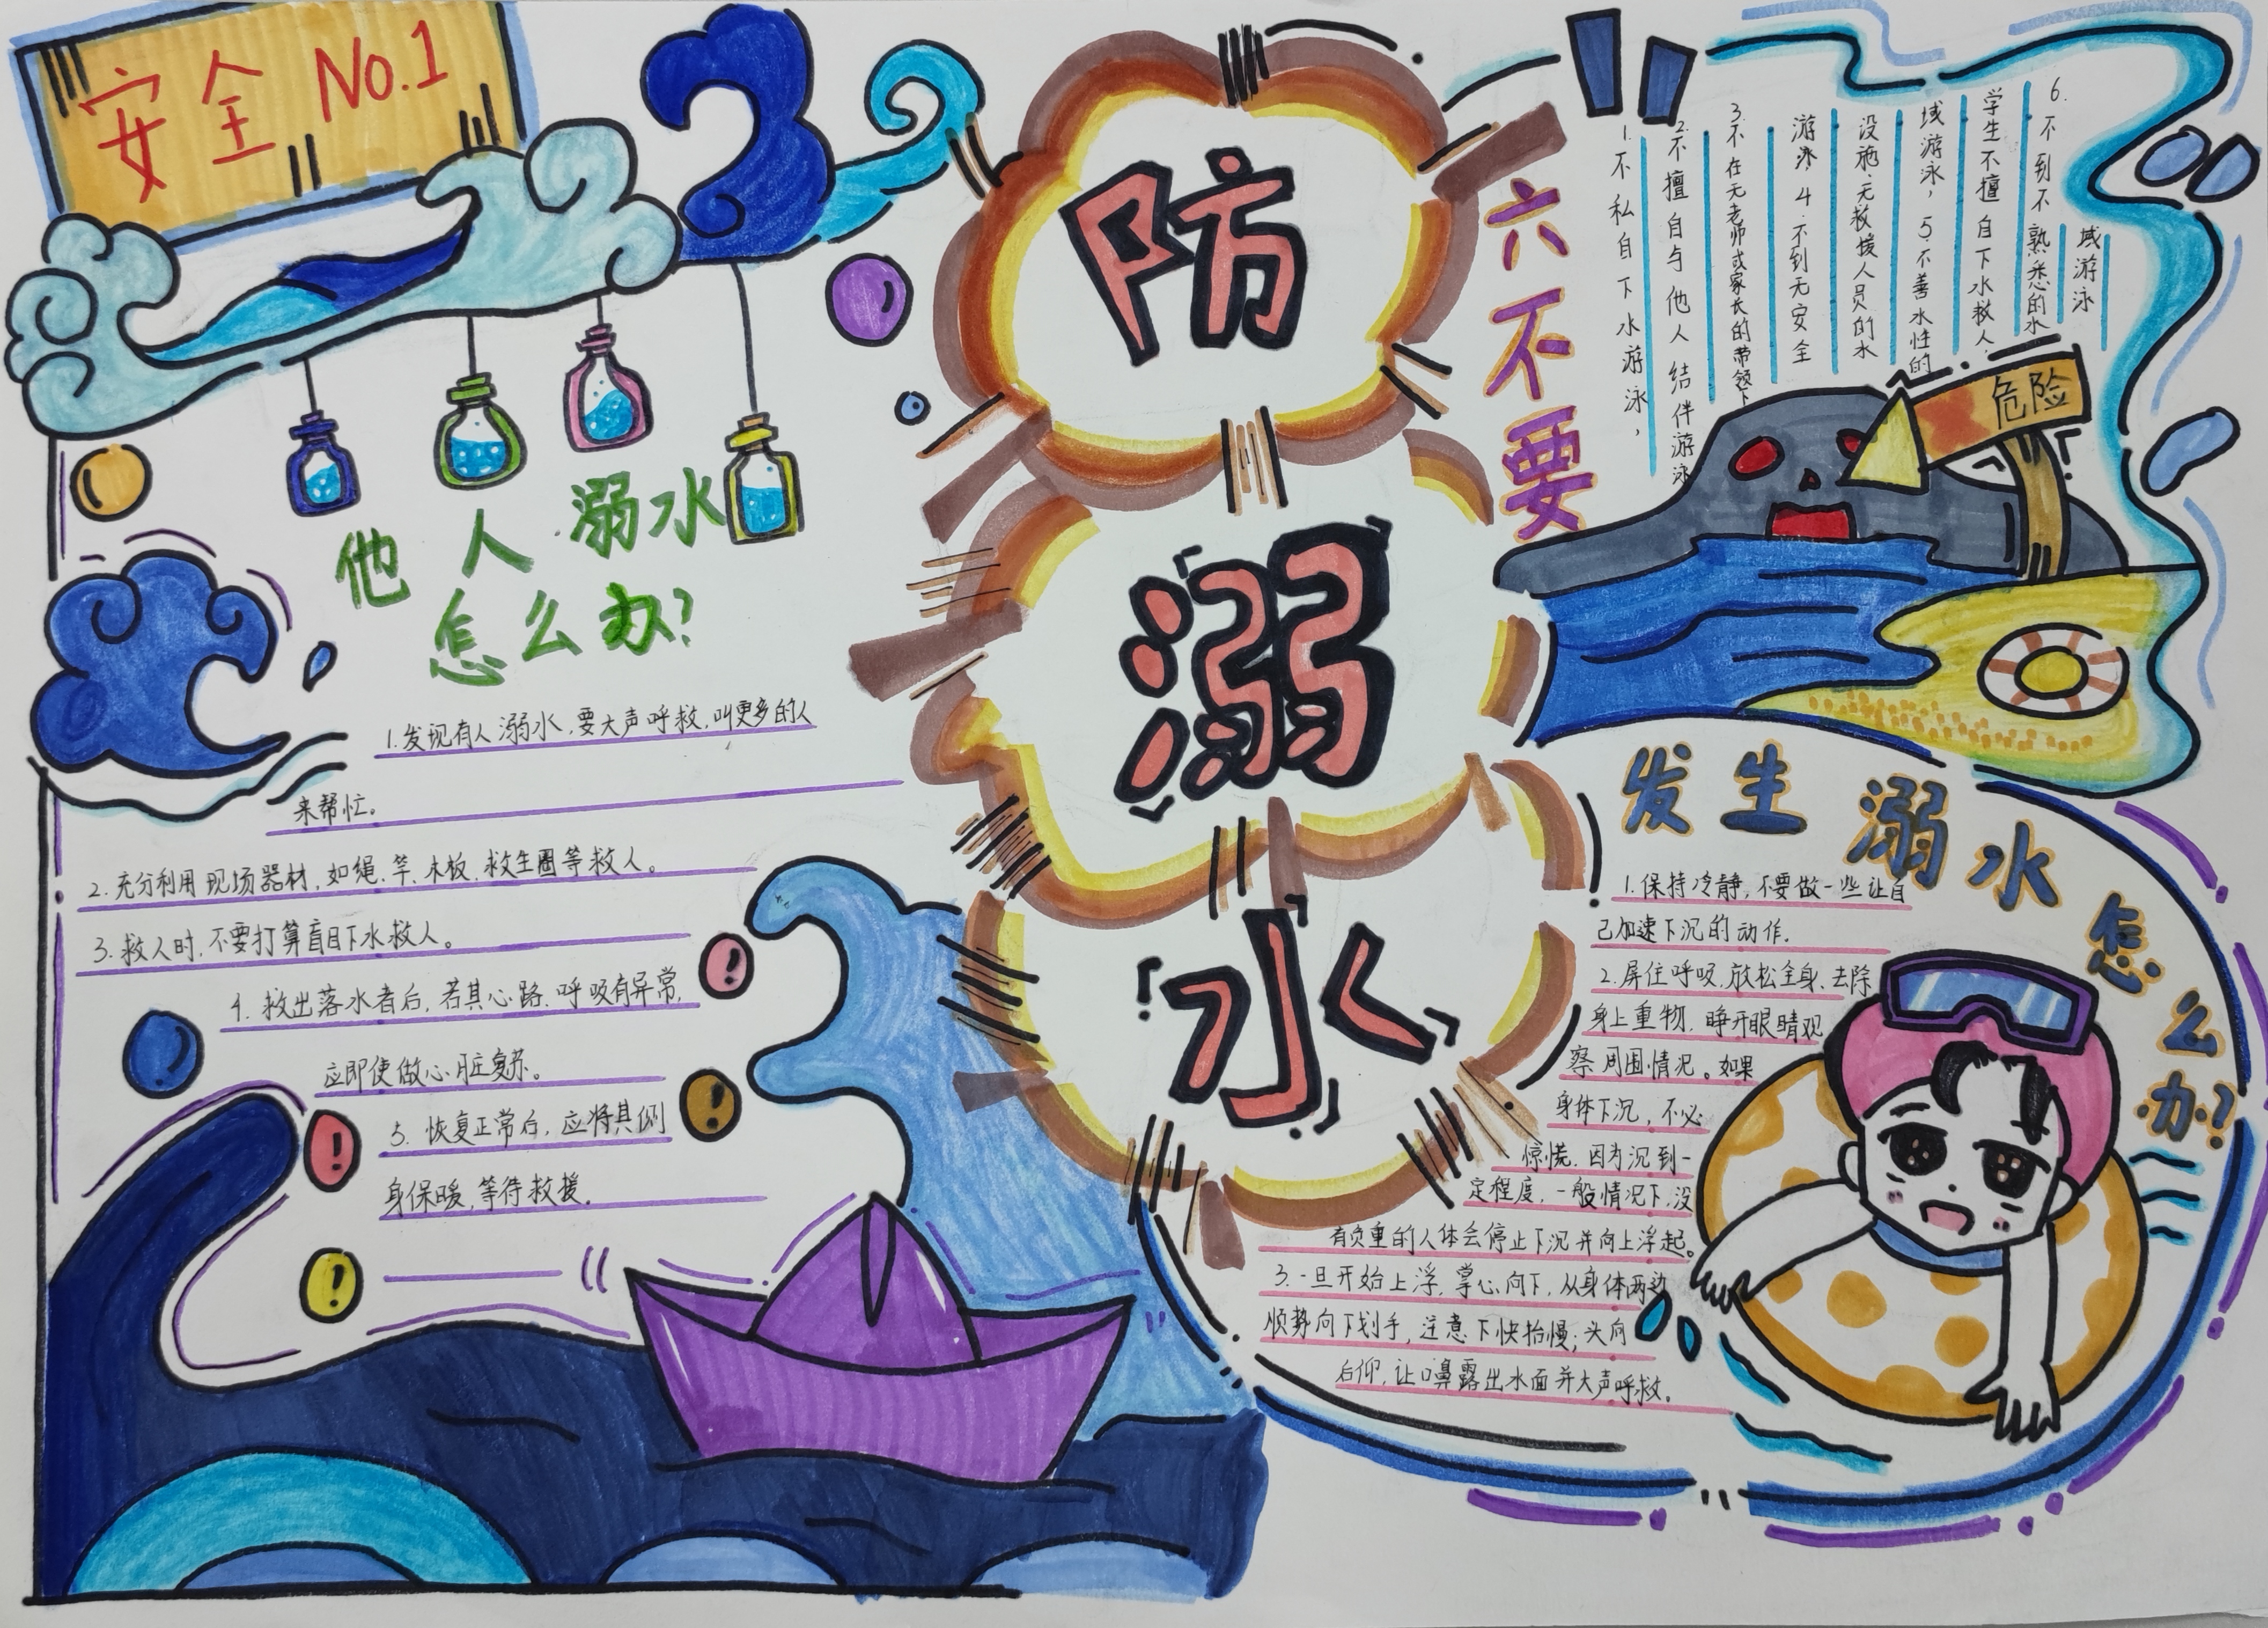 安全 No.1
防
溺
水
他人溺水
怎么办?
1.发现有人溺水,要大声呼救,叫更多的人
来帮忙。
2.充分利用现场器材,如绳、竿、木板、救生圈等救人。
3.救人时,不要打算盲目下水救人。
4.救出落水者后,若其心路、呼吸有异常,
应即使做心脏复苏。
5.恢复正常后,应将其侧
身保暖,等待救援。
六不要
1.不私自下水游泳,
2.不擅自与他人结伴游泳
3.不在无老师或家长的带领下
游泳 4.不到无安全
设施、无救援人员的水
域游泳,5.不善水性的
学生不擅自下水救人,
6.不到不熟悉的水
域游泳
危险
发生溺水怎么办?
1.保持冷静,不要做一些让自
己加速下沉的动作.
2.屏住呼吸,放松全身、去除
身上重物,睁开眼睛观
察周围情况。如果
身体下沉,不必
惊慌,因为沉到一
定程度,一般情况下,没
有负重的人体会停止下沉并向上浮起。
3.一旦开始上浮,掌心向下,从身体两边
顺势向下划手,注意下快抬慢;头向
后仰,让口鼻露出水面并大声呼救。